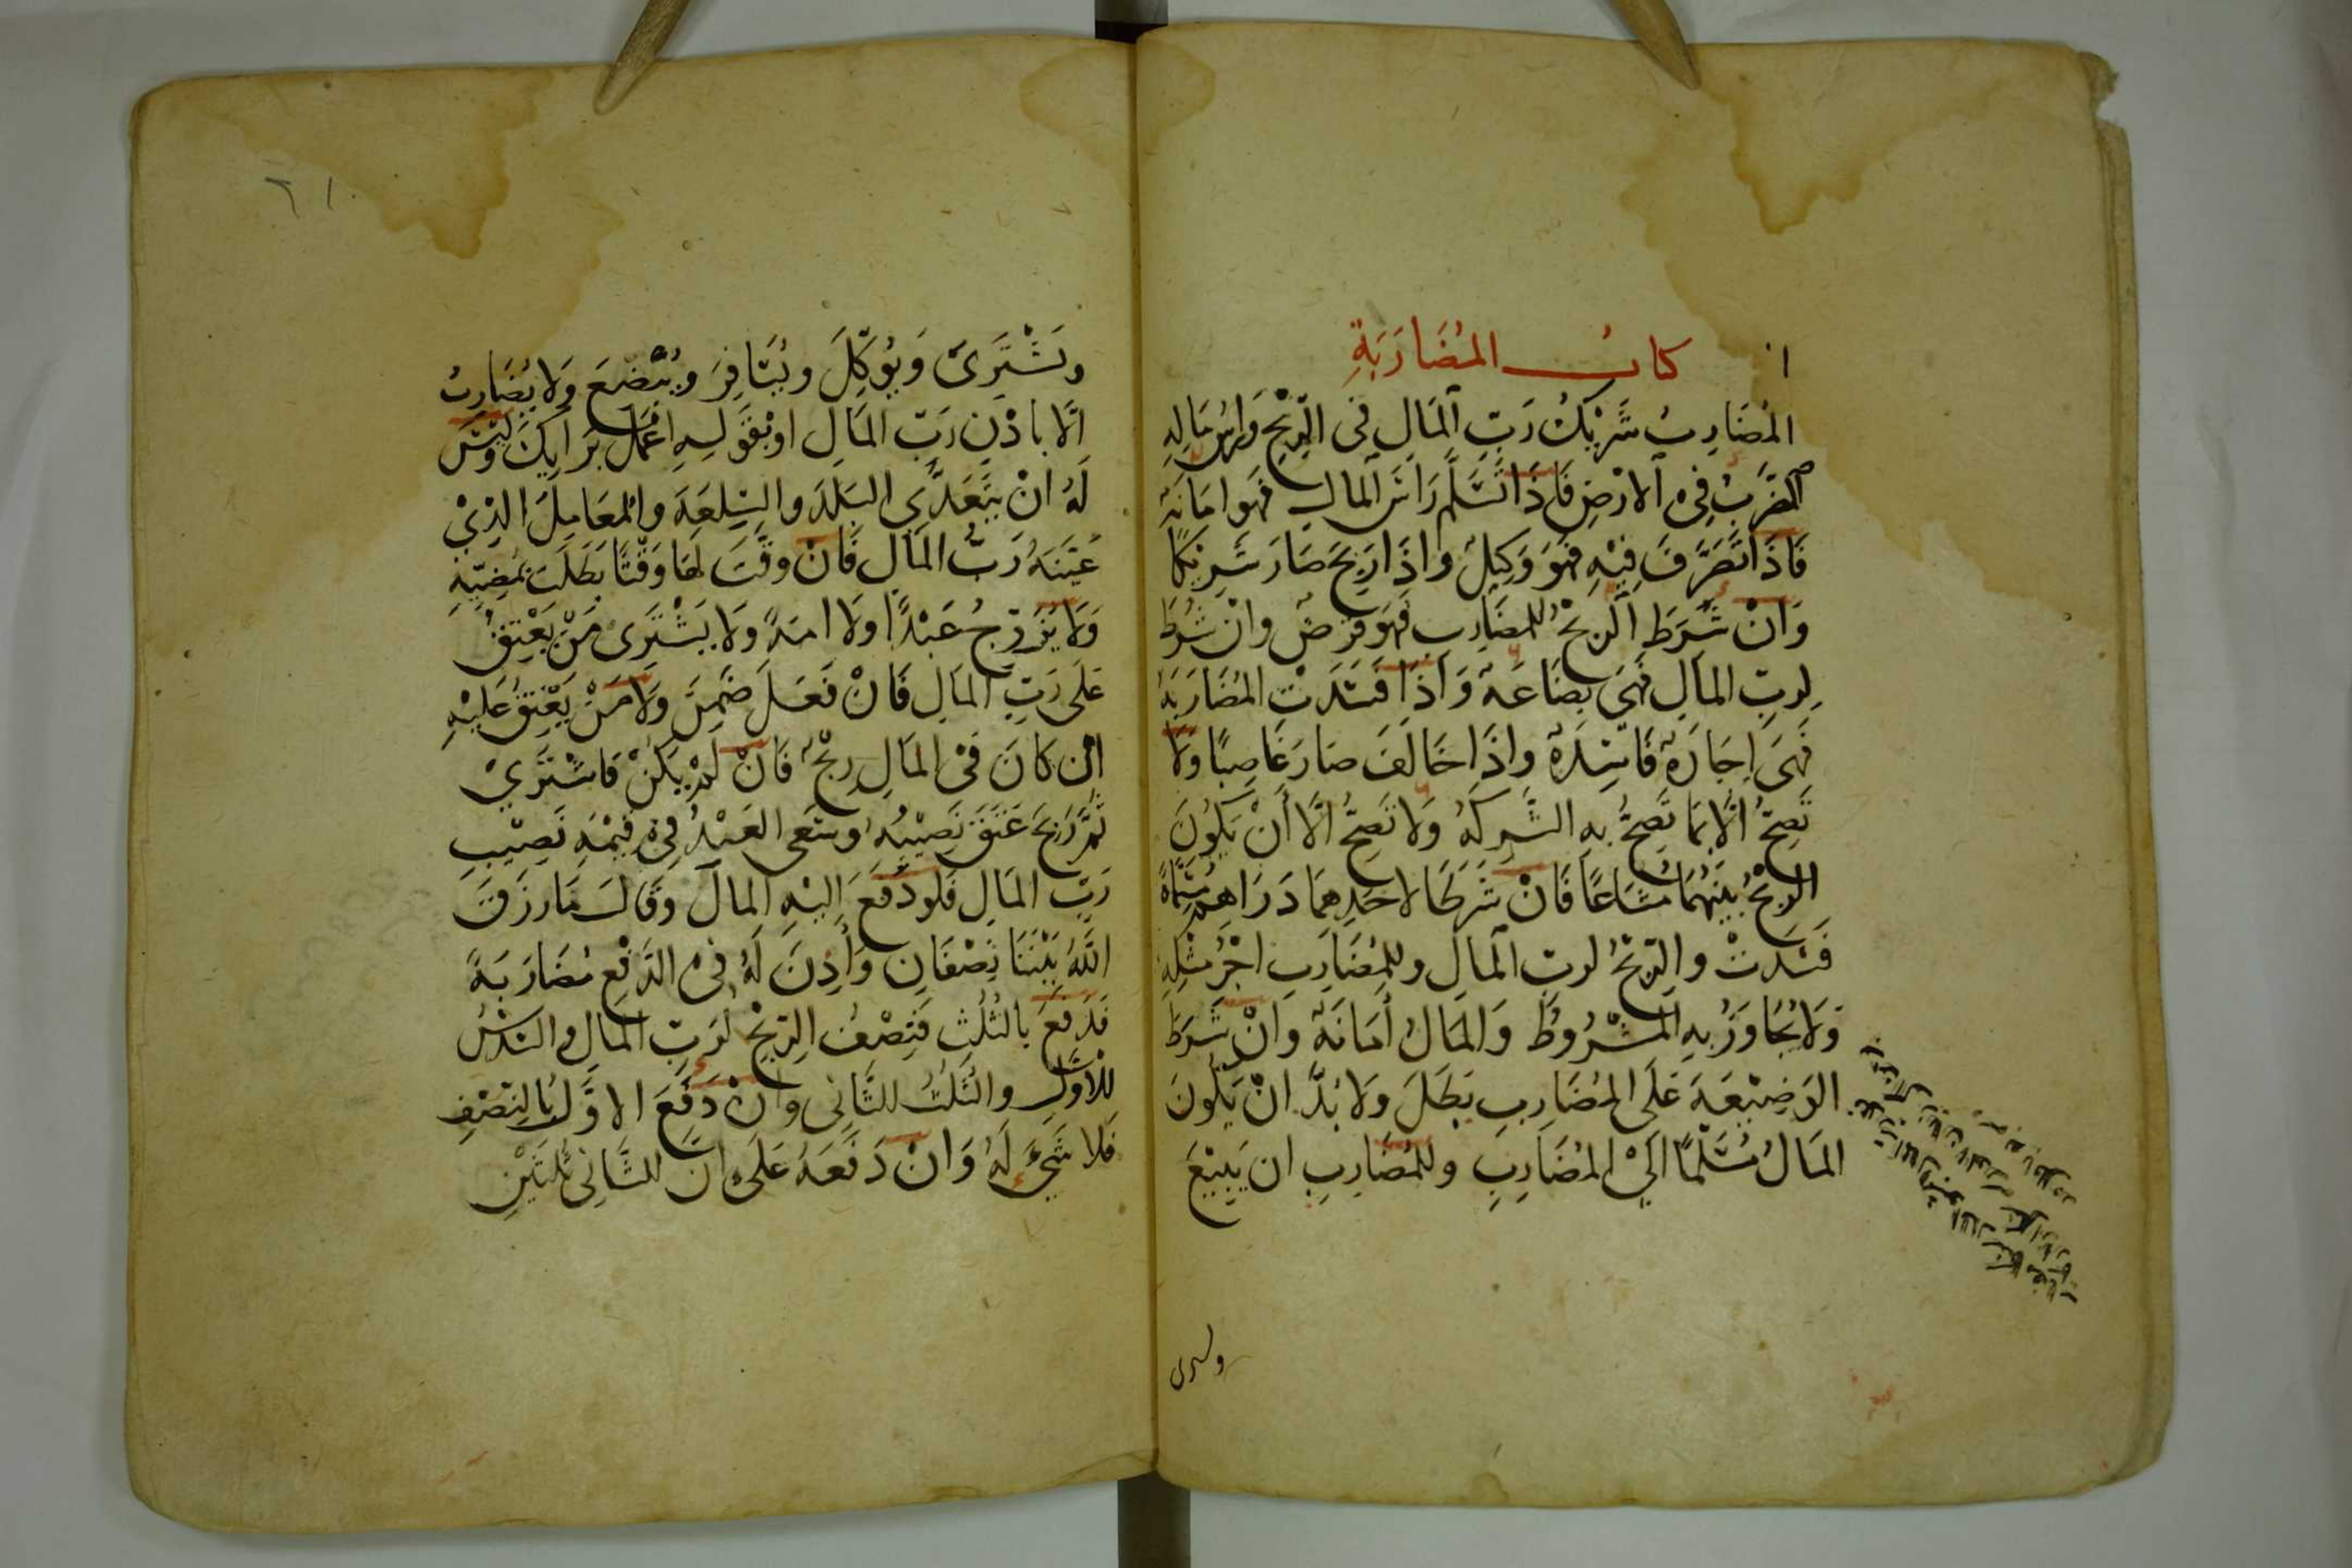 كتاب المُضَارَبَةِ
المُضَارِبُ شَرِيْكُ رَبِّ اَلمَالِ فى الرِّبْحِ وَرَاسُ مَالِهِ
الضَرْبُ فِى الارْضِ فَاذَا تَسَلَّم رَاسَ المال فهو امَانَة
فَاذَا تَصَرَّفَ فِيْهِ فهُوَ وَكِيْلٌ واذَا رَبِحَ صَارَ شَرِيْكًا
وَانْ شُرِطَ الرِبْحُ للمضَارِبِ فهُوَ قرْضٌ وانْ شُرِطَ
لِربِّ المالِ فهِىَ بِضَاعَة وَاذَا فَسَدَتِ المُضَارَبَةُ
فَهِىَ اِجَارَة فَاسِدَة واذَا خَالَفَ صَارَ غَاصِبًا وَلا
تَصِحُّ الَّا بِمَا تَصِحُّ بِهِ الشَّرِكَةُ وَلا تَصِحُّ الَّا أَنْ يَكُونَ
الرِبْحُ بَيْنَهُمَا مشَاعًا فَانْ شَرَطَا لاحَدِهِمَا دَرَاهِمَ مُسَمَّاةً
فَسَدتْ والرِّبْحُ لربّ المالِ وللمُضَارِبِ اجْرُ مثْلِهِ
وَلَا يُجَاوَزُ بِهِ المَشْرُوطُ وَالمَالُ أمَانَة وَانْ شَرَطَ
الوَضِيْعَةَ عَلَى المُضَارِبِ بَطَلَ وَلَا بُدَّ انْ يَكُونَ
المَالُ مُسَلَّمًا الَىْ المُضَارِبِ وللمُضَارِبِ ان يَبِيْعَ
وىسرى
٦١
ويَشْتَرِىَ وَيُوَكِّلَ ويُسَافِرَ ويُبْضِعَ وَلا يُضَارِبُ
الَّا باذْنِ رَبِّ المَالِ اوْ بقَوْلِهِ اعْمَلْ بَرَايِكَ وَلَيْسَ
لَهُ انْ يتَعَدَّى البَلَدَ والسِلعَةَ والمُعَامِلَ الذِىْ
عَيَّنَهُ رَبُّ المَالِ فَانْ وقَّتَ لهَا وَقْتًا بَطَلَتْ بمُضِيِّهِ
وَلَا يُزَوِّجُ عَبْدًا ولَا امَةً ولَا يَشْتَرِى مَنْ يَعْتِقُ
عَلَى رَبِّ المَالِ فَانْ فَعَلَ ضَمِنَ وَلَا مَنْ يَعْتِقُ عَلَيْهِ
ان كَانَ فىْ المَالِ رِبْحٌ فَانْ لَمْ يَكُنْ فَاشْتَرَىْ
ثُمَّ رَبِحَ عَتَقَ نَصِيْبُهُ وسَعَى العَبْدُ فِى قِيْمَةِ نَصِيْبِ
رَبِّ المَالِ فلو دَفَعَ اِليْهِ المالَ وَقَالَ مَا رزَقَ
اللَّهُ بَيْنَنَا نِصْفَانِ وَأَذِنَ لَهُ فىْ الدَّفْعِ مُضَارَبَةً
فدَفعَ بالثُلُثِ فَنِصْفُ الرِبْحِ لرَبّ المَالِ والسُدْسُ
للاَوَّلِ والثُلُثُ للثَّانِى وانْ دَفَعَ الاوَّلُ بالنِصْفِ
فَلا شَىْءَ لَهُ وَانْ دَفَعَهُ عَلَى انَّ للثَّانِى ثُلُثَيْنِ